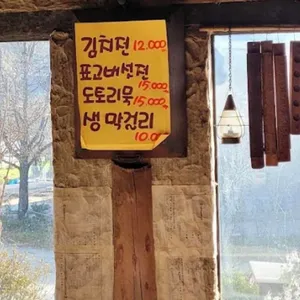 김치전 12.000
표고버섯전 15.000
도토리묵 15.000
생 막걸리 10.00